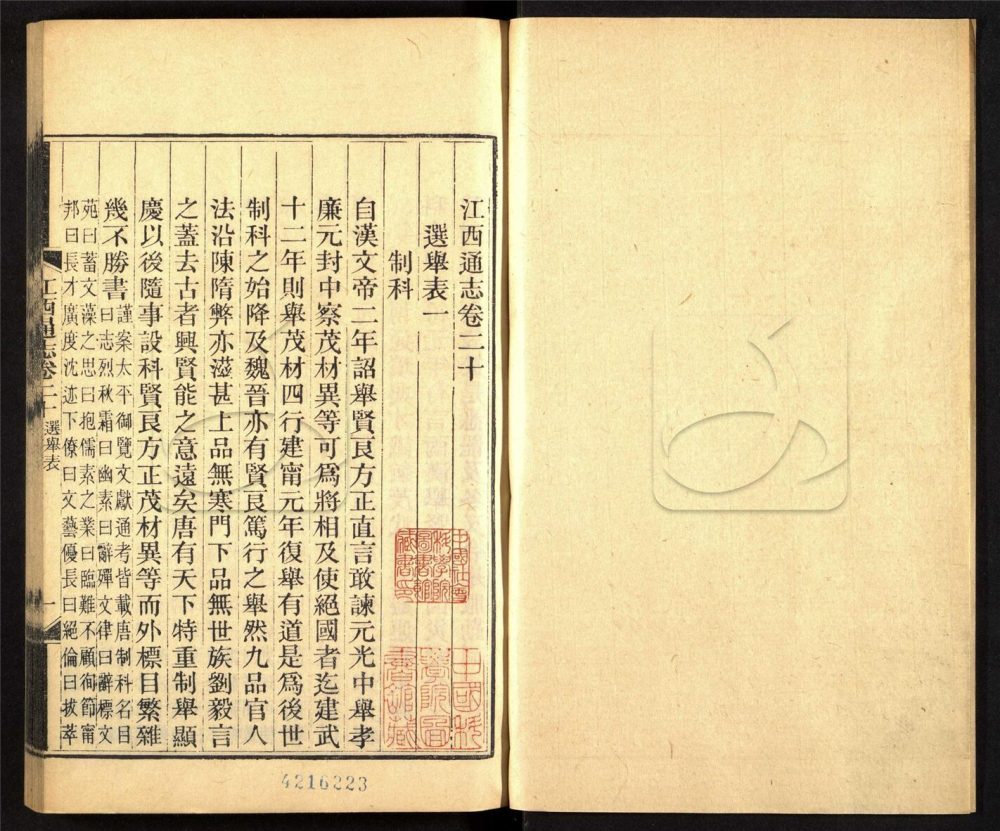 江西通志卷二十
選舉表一
制科
自漢文帝二年詔舉賢良方正直言敢諫元光中舉孝
廉元封中察茂材異等可爲將相及使絕國者迄建武
十二年則舉茂材四行建甯元年復舉有道是爲後世
制科之始降及魏晉亦有賢良篤行之舉然九品官人
法沿陳隋弊亦滋甚上品無寒門下品無世族劉毅言
之蓋去古者興賢能之意遠矣唐有天下特重制舉顯
慶以後隨事設科賢良方正茂材異等而外標目繁雜
幾不勝書謹案太平御覽文獻通考皆載唐制科名目
曰志烈秋霜曰幽素曰辭殫文律曰辭標文
苑曰蓄文藻之思曰抱儒素之業曰臨難不顧徇節甯
邦曰長才廣度沈迹下僚曰文藝優長曰絕倫曰拔萃
江西通志卷二十 選舉表 一
中國社會
科學院
圖書館
藏書印
中國科
學院圖
書館藏
4216223